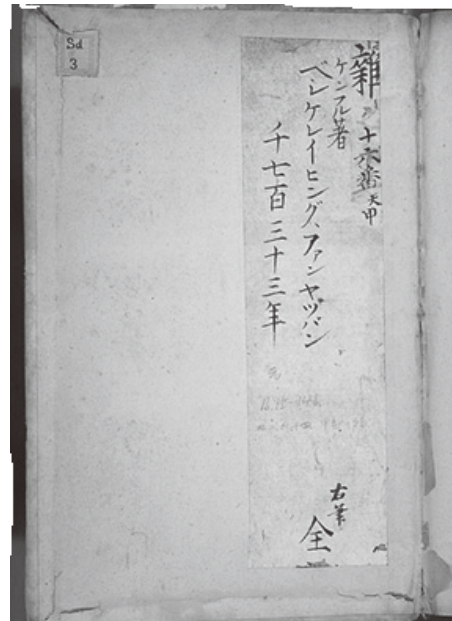 Sd
3
雑ノ十六番 天甲
ケンフル著
ベシケレイヒング、ファンヤッパン
千七百三十三年
右筆
全